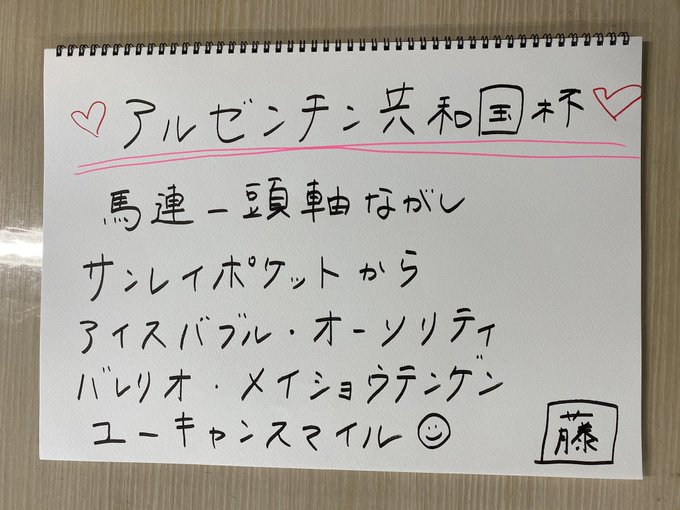 ♡アルゼンチン共和国杯♡
馬連一頭軸ながし
サンレイポケットから
アイスバブル・オーソリティ
バレリオ・メイショウテンゲン
ユーキャンスマイル☺
藤